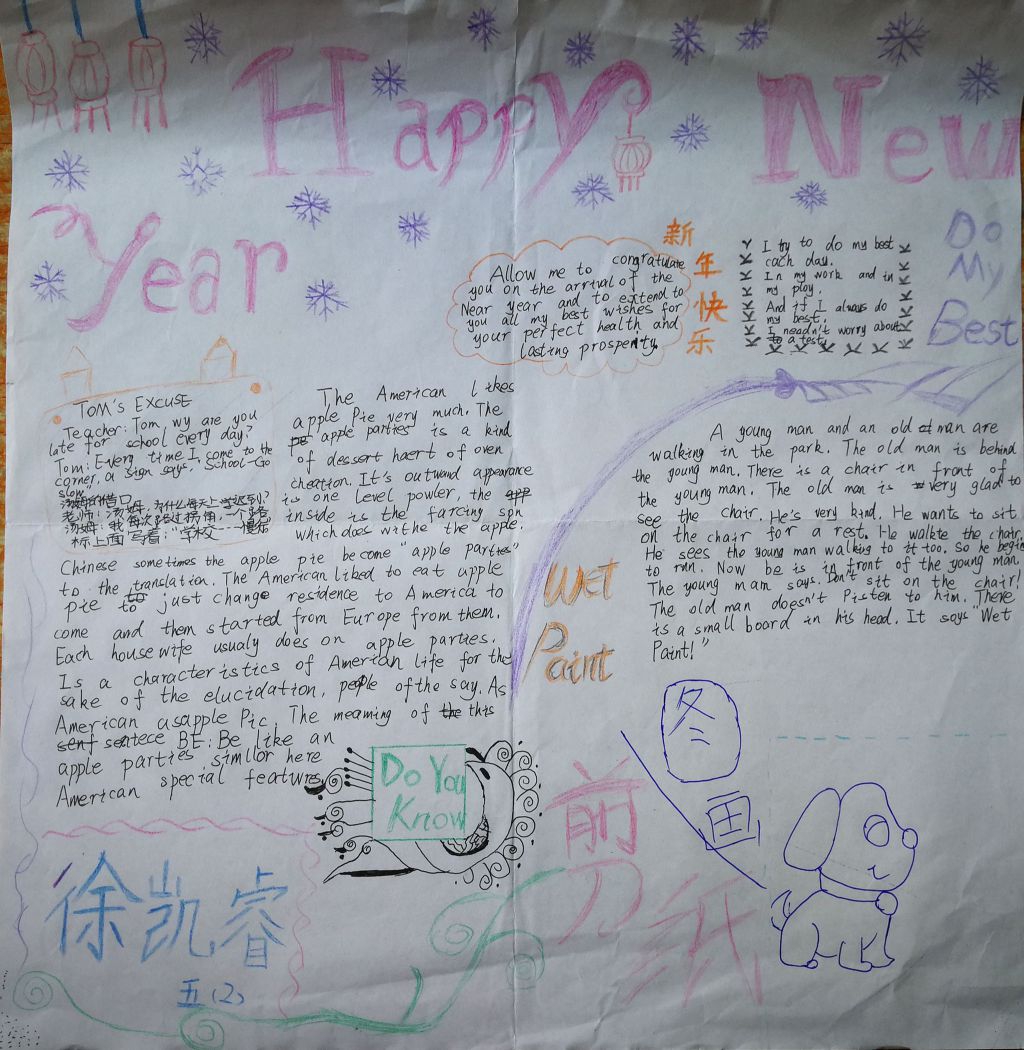 Happy New
Year
新
年
快
乐
Allow me to congratulate
you on the arrival of the
Near year and to extend to
you all my best wishes for
your perfect health and
lasting prosperity.
I try to do my best
each day.
In my work and in
my play.
And if I always do
my best.
I neadn't worry about
to a test.
Do
My
Best
TOM'S EXCUSE
Teacher: Tom, wy are you
late for school every day?
Tom: Every time I come to the
corner, a sign says, "School-Go
slow."
汤姆的借口
老师：汤姆，为什么每天上学迟到？
汤姆：我每次路过拐角，一个路
标上面写着："学校---慢行
The American likes
apple Pie very much. The
apple parties is a kind
of dessert haert of oven
cheation. It's outwand appearance
is one level powler, the
inside is the farcing spn
which does withe the apple.
Chinese sometimes the apple pie become "apple parties"
to the translation. The American liked to eat apple
pie to just change residence to America to
come and them started from Europe from them.
Each housewife usualy does on apple parties.
Is a characteristics of American life for the
sake of the elucidation, people of the say. As
American asapple Pic, The meaming of the this
senf seatece BE: Be like an
apple parties simllor here
American special features
Do You
Know
A young man and an old man are
walking in the park. The old man is behind
the young man. There is a chair in front of
the young man. The old man is very glad to
see the chair. He's very kind. He wants to sit
on the chair for a rest. He walkte the chair.
He sees the young man walking to it too. So he begin
to run. Now be is in front of the young man.
The young mam says. Don't sit on the chair!
The old man doesn't Pisten to him. There
is a small board in his head. It says "Wet
Paint!"
Wet
Paint
冬
画
剪
刀
纸
徐凯睿
五（2）